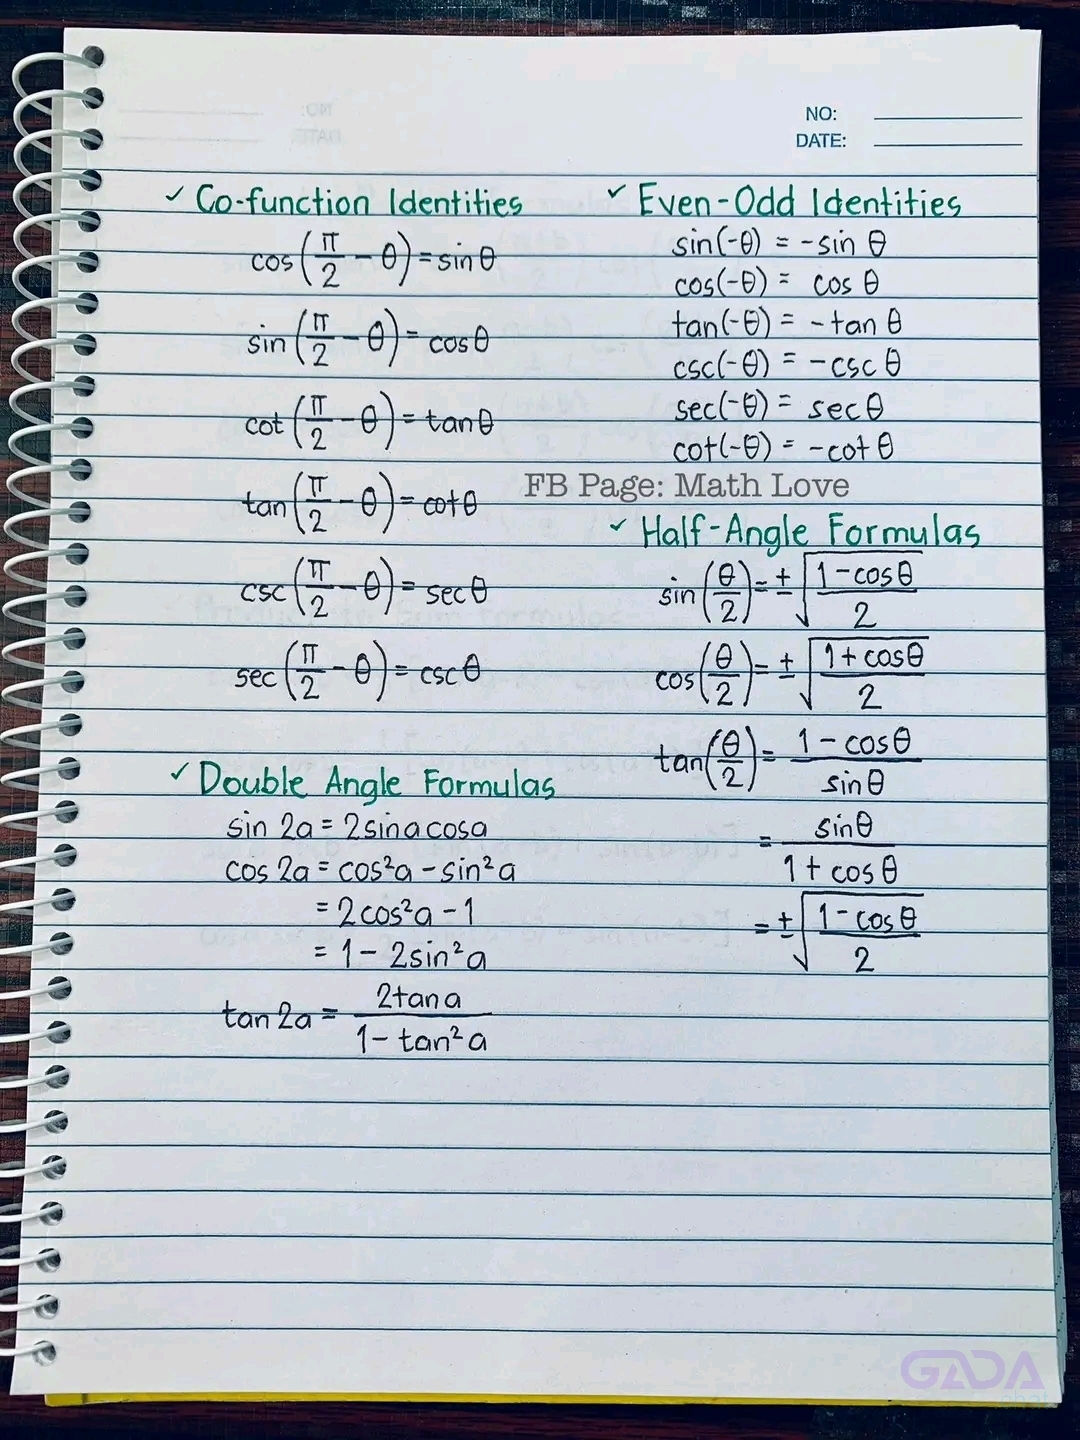 NO:
DATE:
✓ Co-function Identities
cos(π/2 - θ) = sin θ
sin(π/2 - θ) = cos θ
cot(π/2 - θ) = tan θ
tan(π/2 - θ) = cot θ
csc(π/2 - θ) = sec θ
sec(π/2 - θ) = csc θ
✓ Double Angle Formulas
sin 2a = 2 sin a cos a
cos 2a = cos²a - sin²a
= 2cos²a - 1
= 1 - 2sin²a
tan 2a = 2tan a / 1 - tan²a
✓ Even-Odd Identities
sin(-θ) = -sin θ
cos(-θ) = cos θ
tan(-θ) = -tan θ
csc(-θ) = -csc θ
sec(-θ) = sec θ
cot(-θ) = -cot θ
FB Page: Math Love
✓ Half-Angle Formulas
sin(θ/2) = ± √(1 - cos θ / 2)
cos(θ/2) = ± √(1 + cos θ / 2)
tan(θ/2) = 1 - cos θ / sin θ
= sin θ / 1 + cos θ
= ± √(1 - cos θ / 2)
GADA